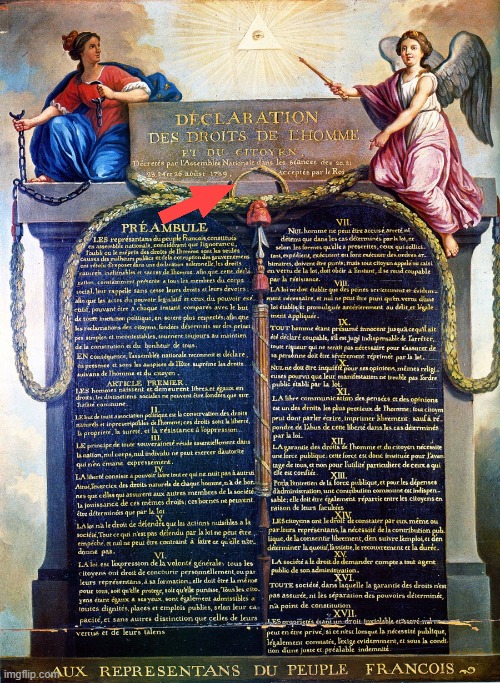 DÉCLARATION
DES DROITS DE L'HOMME
ET DU CITOYEN,
Décretés par l'Assemblée Nationale dans les séances des 20. 21
23. 24 et 26 août 1789, acceptés par le Roi
PRÉAMBULE
LES représentans du peuple Francois, constitués
en assemblée nationale, considérant que l'ignorance,
l'oubli ou le mépris des droits de l'homme sont les seules
causes des malheurs publics et de la corruption des gouvernemens
ont résolu d'exposer dans une déclaration solemnelle, les droits
naturels, inaliénables et sacrés de l'homme; afin que cette décla
ration, constamment présente a tous les membres du corps
social, leur rappelle sans cesse leurs droits et leurs devoirs;
afin que les actes du pouvoir législatif et ceux du pouvoir exé
cutif, pouvant être a chaque instant comparés avec le but
de toute institution politique, en soient plus respectés; afin que
les réclamations des citoyens, fondées désormais sur des princi
pes simples et incontestables, tournent toujours au maintien
de la constitution et du bonheur de tous.
EN conséquence, l'assemblée nationale reconnoît et déclare,
en présence et sous les auspices de l'Etre suprême les droits
suivans de l'homme et du citoyen.
ARTICLE PREMIER.
LES hommes naissent et demeurent libres et égaux en
droits; les distinctions sociales ne peuvent être fondées que sur
l'utilité commune.
II.
LE but de toute association politique est la conservation des droits
naturels et imprescriptibles de l'homme; ces droits sont la liberté,
la propriété, la sureté, et la résistance à l'oppression.
III.
LE principe de toute souveraineté réside essentiellement dans
la nation, nul corps, nul individu ne peut exercer d'autorité
qui n'en émane expressément.
IV.
LA liberté consiste à pouvoir faire tout ce qui ne nuit pas à autrui
Ainsi, l'exercice des droits naturels de chaque homme, n'a de bor
nes que celles qui assurent aux autres membres de la société
la jouissance de ces mêmes droits; ces bornes ne peuvent
être déterminées que par la loi.
V.
LA loi n'a le droit de défendre que les actions nuisibles à la
société. Tout ce qui n'est pas défendu par la loi ne peut être
empêché, et nul ne peut être contraint à faire ce qu'elle n'or-
donne pas.
VI.
LA loi est l'expression de la volonté générale; tous les
citoyens ont droit de concourir personnellement, ou par
leurs représentans, à sa formation; elle doit être la même
pour tous, soit qu'elle protege, soit qu'elle punisse. Tous les cito
yens étant égaux à ses yeux, sont également admissibles à
toutes dignités, places et emplois publics, selon leur ca-
pacité, et sans autres distinction que celles de leurs
vertus et de leurs talens.
VII.
NUL homme ne peut être accusé, arrêté, ni
détenu que dans les cas déterminés par la loi, et
selon les formes qu'elle a prescrites, ceux qui sollici-
tent, expédient, exécutent ou font exécuter des ordres ar-
bitraires, doivent être punis; mais tout citoyen appelé ou saisi
en vertu de la loi, doit obéir a l'instant, il se rend coupable
par la résistance.
VIII.
LA loi ne doit établir que des peines strictement et évidem-
ment nécessaire, et nul ne peut être puni qu'en vertu d'une
loi établie, et promulguée antérieurement au délit, et légale-
ment appliquée.
IX.
TOUT homme étant présumé innocent jusqu'à ce qu'il ait
été déclaré coupable, s'il est jugé indispensable de l'arrêter,
toute rigueur qui ne serait pas nécessaire pour s'assurer de
sa personne doit être sévèrement réprimée par la loi.
X.
NUL ne doit être inquiété pour ses opinions, mêmes religi-
euses pourvu que leur manifestation ne trouble pas l'ordre
public établi par la loi.
XI.
LA libre communication des pensées et des opinions
est un des droits les plus precieux de l'homme; tout citoyen
peut donc parler écrire, imprimer librement: sauf à ré-
pondre de l'abus de cette liberté dans les cas déterminés
par la loi.
XII.
LA garantie des droits de l'homme et du citoyen nécessite
une force publique; cette force est donc instituée pour l'avan-
tage de tous, et non pour l'utilité particuliere de ceux a qui
elle est confiée.
XIII.
Pour l'entretien de la force publique, et pour les dépenses
d'administration, une contribution commune est indispen-
sable; elle doit être également répartie entre les citoyens en
raison de leurs facultés.
XIV.
LES citoyens ont le droit de constater par eux même ou
par leurs représentans, la nécessité de la contribution pub-
lique, de la consentir librement, d'en suivre l'emploi, et d'en
déterminer la quotité, l'assiette, le recouvrement et la durée.
XV.
LA société a le droit de demander compte a tout agent
public de son administration.
XVI.
TOUTE société, dans laquelle la garantie des droits n'est
pas assurée, ni les séparation des pouvoirs déterminée,
n'a point de constitution.
XVII.
LES propriétés étant un droit inviolable et sacré, nul ne
peut en être privé, si ce n'est lorsque la nécessité publique,
légalement constatée, l'exige evidemment, et sous la condi-
tion d'une juste et préalable indemnité.
AUX REPRESENTANS DU PEUPLE FRANCOIS
imgflip.com